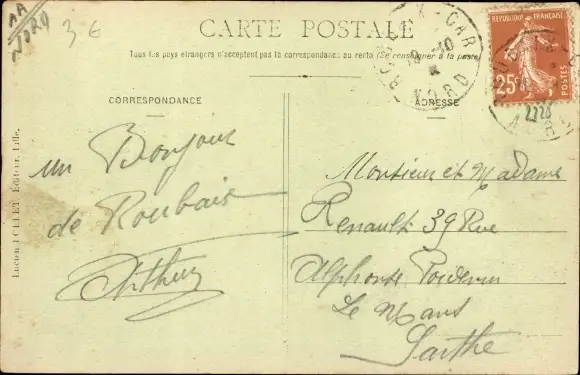 AA
NORD
3 €
CARTE POSTALE
Tous les pays étrangers n'acceptent pas la correspondance au recto (Se renseigner à la poste)
CORRESPONDANCE
ADRESSE
REPUBLIQUE FRANÇAISE
25c
POSTES
GARE
NORD
un Bonjour
de Roubaix
Arthur
Monsieur et Madame
Renault 39 Rue
Alphonse Poidevin
Le Mans
Sarthe
Éditeur, Lille.